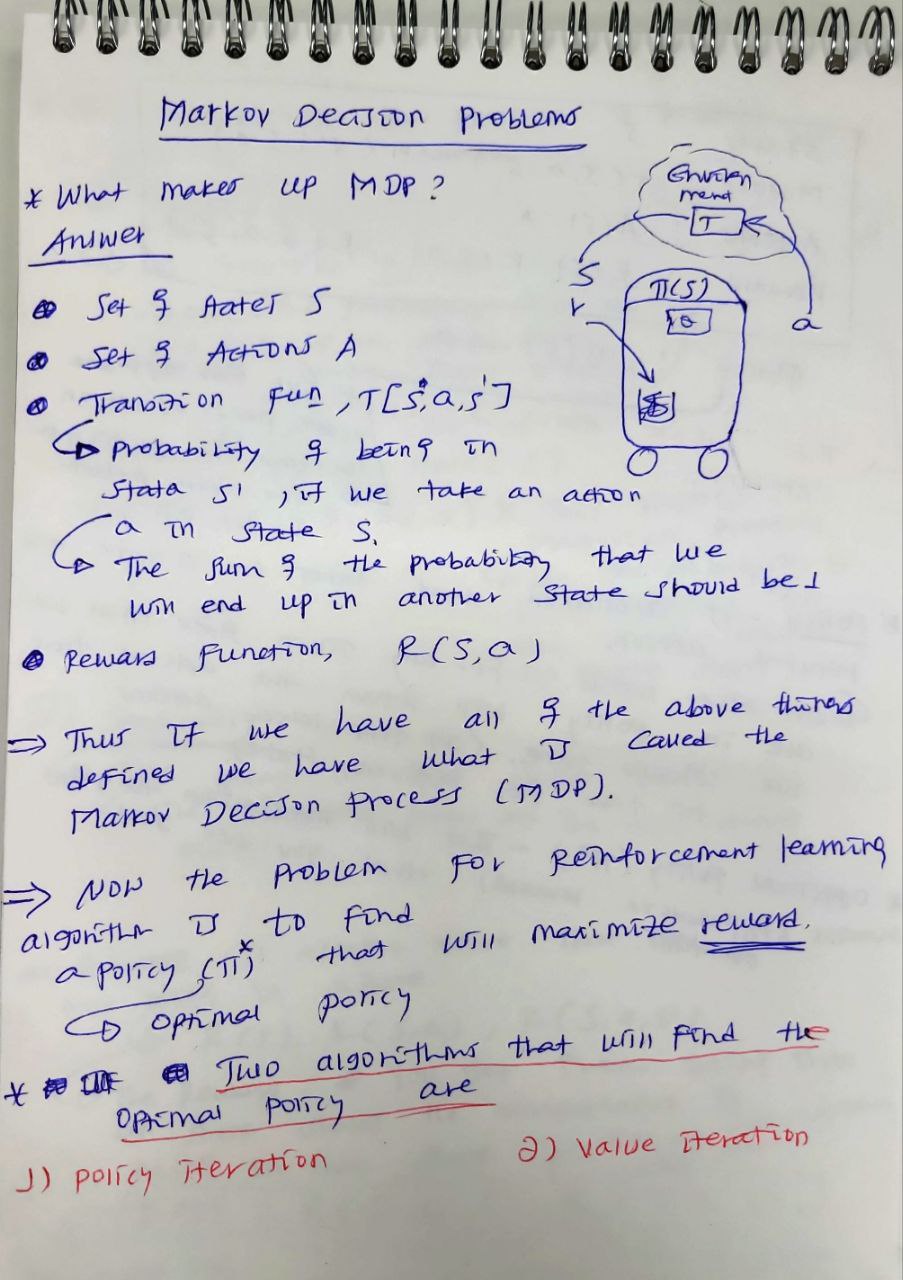 Markov Decision Problems
* What makes up MDP?
Answer
Environ
ment
T
S
r
π(s)
a
Set of states S
Set of Actions A
Transition Fun, T[s, a, s']
Probability of being in
state s', if we take an action
a in state S.
The sum of the probability that we
will end up in another state should be 1
Reward Function, R(S, a)
⇒ Thus if we have all of the above things
defined we have what is called the
Markov Decison Process (MDP).
⇒ Now the problem for Reinforcement learning
algorithm is to find
a policy (π*) that will maximize reward.
Optimal policy
* Two algorithms that will find the
Optimal policy are
1) policy iteration
2) value iteration